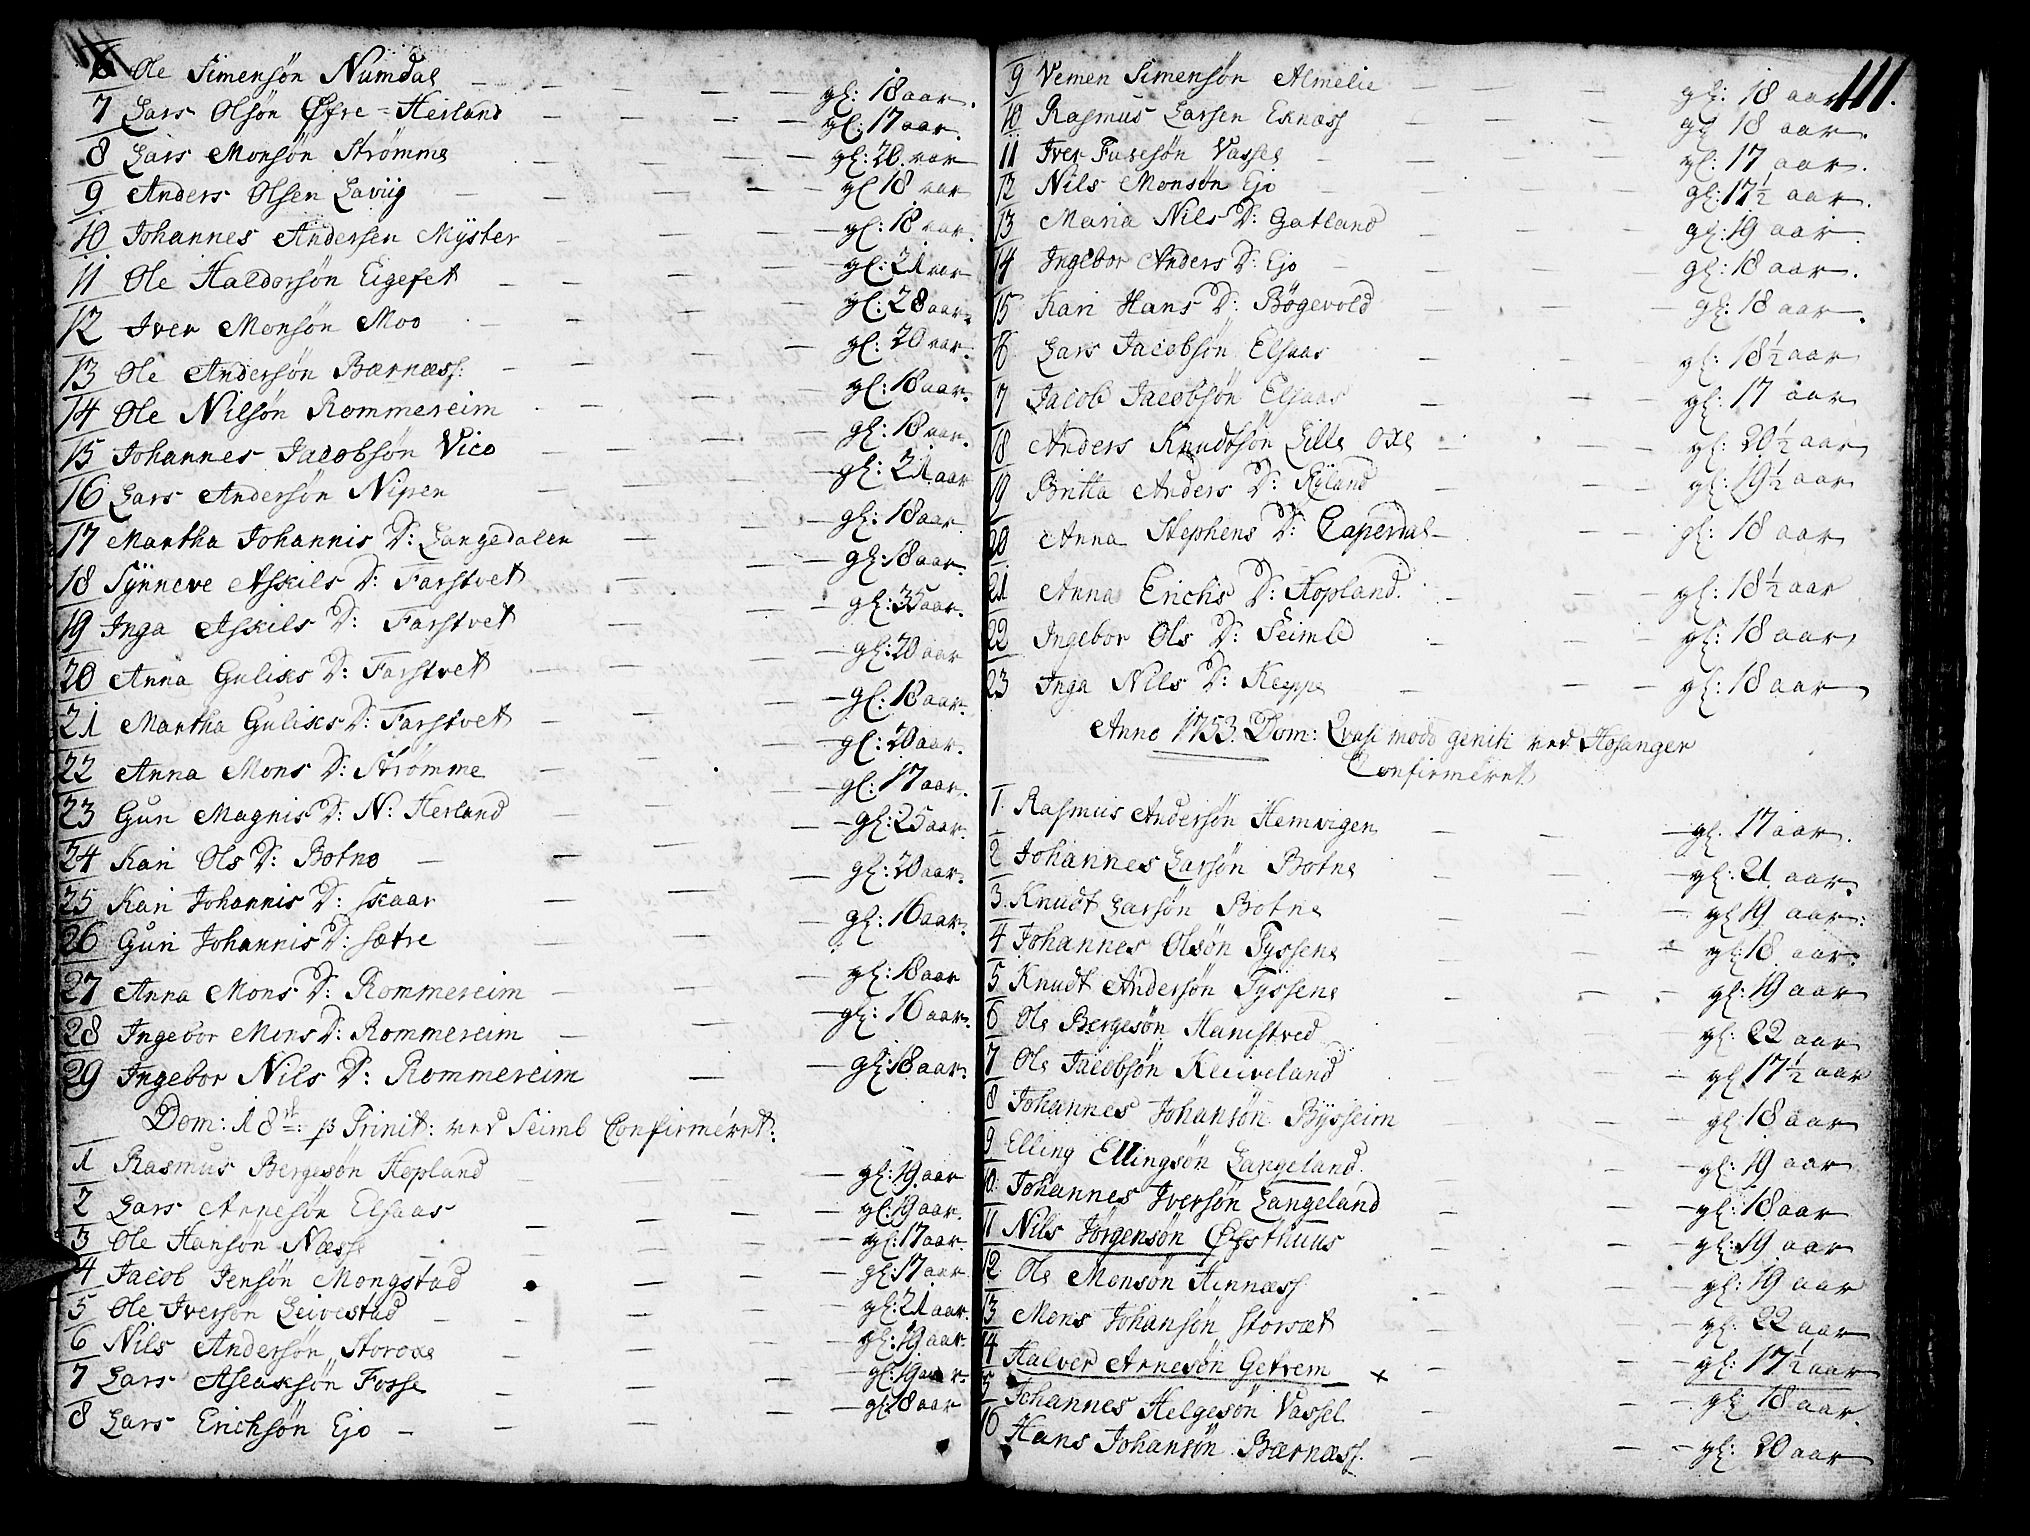 6 Ole Simensøn Numdal — gl: 18 aar.
7 Lars Olsøn Øfre-Heiland — gl: 17 aar.
8 Lars Monsøn Strømme — gl: 20. aar
9 Anders Olsen Laviig — gl 18 aar
10 Johannes Andersen Mÿster — gl: 18 aar.
11 Ole Haldorsøn Eigefet — gl: 21 aar
12 Iver Monsøn Moo — gl: 28 aar.
13 Ole Andersøn Bærnæss. — gl: 20 aar.
14 Ole Nilsøn Rommereim — gl: 18 aar.
15 Johannes Jacobsøn Vico — gl: 18 aar.
16 Lars Andersøn Nipen — gl: 21 aar
17 Martha Johannis D: Langedalen — gl: 18 aar
18 Sÿnneve Askils D: Farstvet — gl: 18 aar.
19 Inga Askils D: Farstvet — gl: 35 aar.
20 Anna Guliks D: Farstvet — gl: 20 aar
21 Martha Guliks D: Farstvet — gl: 18 aar.
22 Anna Mons D: Strømme — gl: 20 aar.
23 Guri Magnis D: N: Herland — gl: 17 aar.
24 Kari Ols D: Botne — gl: 25 aar.
25 Kari Johannis D: Skaar — gl: 20 aar.
26 Guri Johannis D: Sætre — gl: 16 aar.
27 Anna Mons D: Rommereim — gl: 18 aar
28 Ingebor Mons D: Rommereim — gl: 16 aar.
29 Ingebor Nils D: Rommereim — gl: 18 aar.
Dom: 18de: p Trinit: ved Seimb Confirmeret:
1 Rasmus Bergesøn Hopland — gl: 19 aar
2 Lars Arnesøn Elsaas — gl: 19 aar.
3 Ole Hansøn Næsse — gl: 17 aar.
4 Jacob Jensøn Mongstad — gl: 17 aar
5 Ole Iversøn Leivestad — gl: 21 aar.
6 Nils Andersøn Storoxe — gl: 19 aar.
7 Lars Aslaksøn Fosse — gl: 19 aar.
8 Lars Erichsøn Ejo — gl: 18 aar
111.
9 Vemen Simensøn Almelie — gl: 18 aar
10 Rasmus Larsen Eknæss — gl 18 aar.
11 Iver Fusesøn Vassel — gl: 17 aar.
12 Nils Monsøn Ejo — gl: 17½ aar.
13 Maria Nils D: Gatland — gl: 19 aar.
14 Ingebor Anders D: Ejo — gl: 18 aar.
15 Kari Hans D: Bøgevold — gl: 18 aar.
16 Lars Jacobsøn Elsaas — gl: 18½ aar
17 Jacob Jacobsøn Elsaas — gl: 17 aar
18 Anders Knudtsøn Lille Oxe — gl: 20½ aar
19 Britta Anders D: Rÿland — gl: 19½ aar
20 Anna Stephens D: Caperdal — gl: 18 aar
21 Anna Erichs D: Hopland. — gl: 18½ aar
22 Ingebor Ols D: Seimb — gl: 18 aar
23 Inga Nils D: Keppe — gl: 18 aar
Anno 1753. Dom: Qvasi modo geniti ved Hosanger
Confirmeret
1. Rasmus Andersøn Hemvigen — gl. 17 aar.
2 Johannes Larsøn Botne — gl: 21 aar.
3. Knudt Larsøn Botne — gl 19 aar:
4 Johannes Olsøn Tyssene — gl: 18. aar.
5 Knudt Andersøn Tyssene — gl: 19 aar
6 Ole Bergesøn Hanistved — gl: 22 aar
7 Ole Jacobsøn Kleiveland — gl 17½ aar
8 Johannes Johansøn Bysseim — gl 18 aar
9 Elling Ellingsøn Langeland. — gl: 19 aar
10. Johannes Iversøn Langeland — gl: 18 aar
11 Nils Jørgensøn Østhuus — gl: 19 aar
12. Ole Monsøn Hinnæss — gl: 19 aar
13 Mons Johansøn Storsæt — gl: 22 aar
14 Halver Arnesøn Getrem + — gl: 17½ aar
15 Johannes Helgesøn Vassel — gl: 18 aar.
16 Hans Johansøn Bærnæss — gl: 20 aar